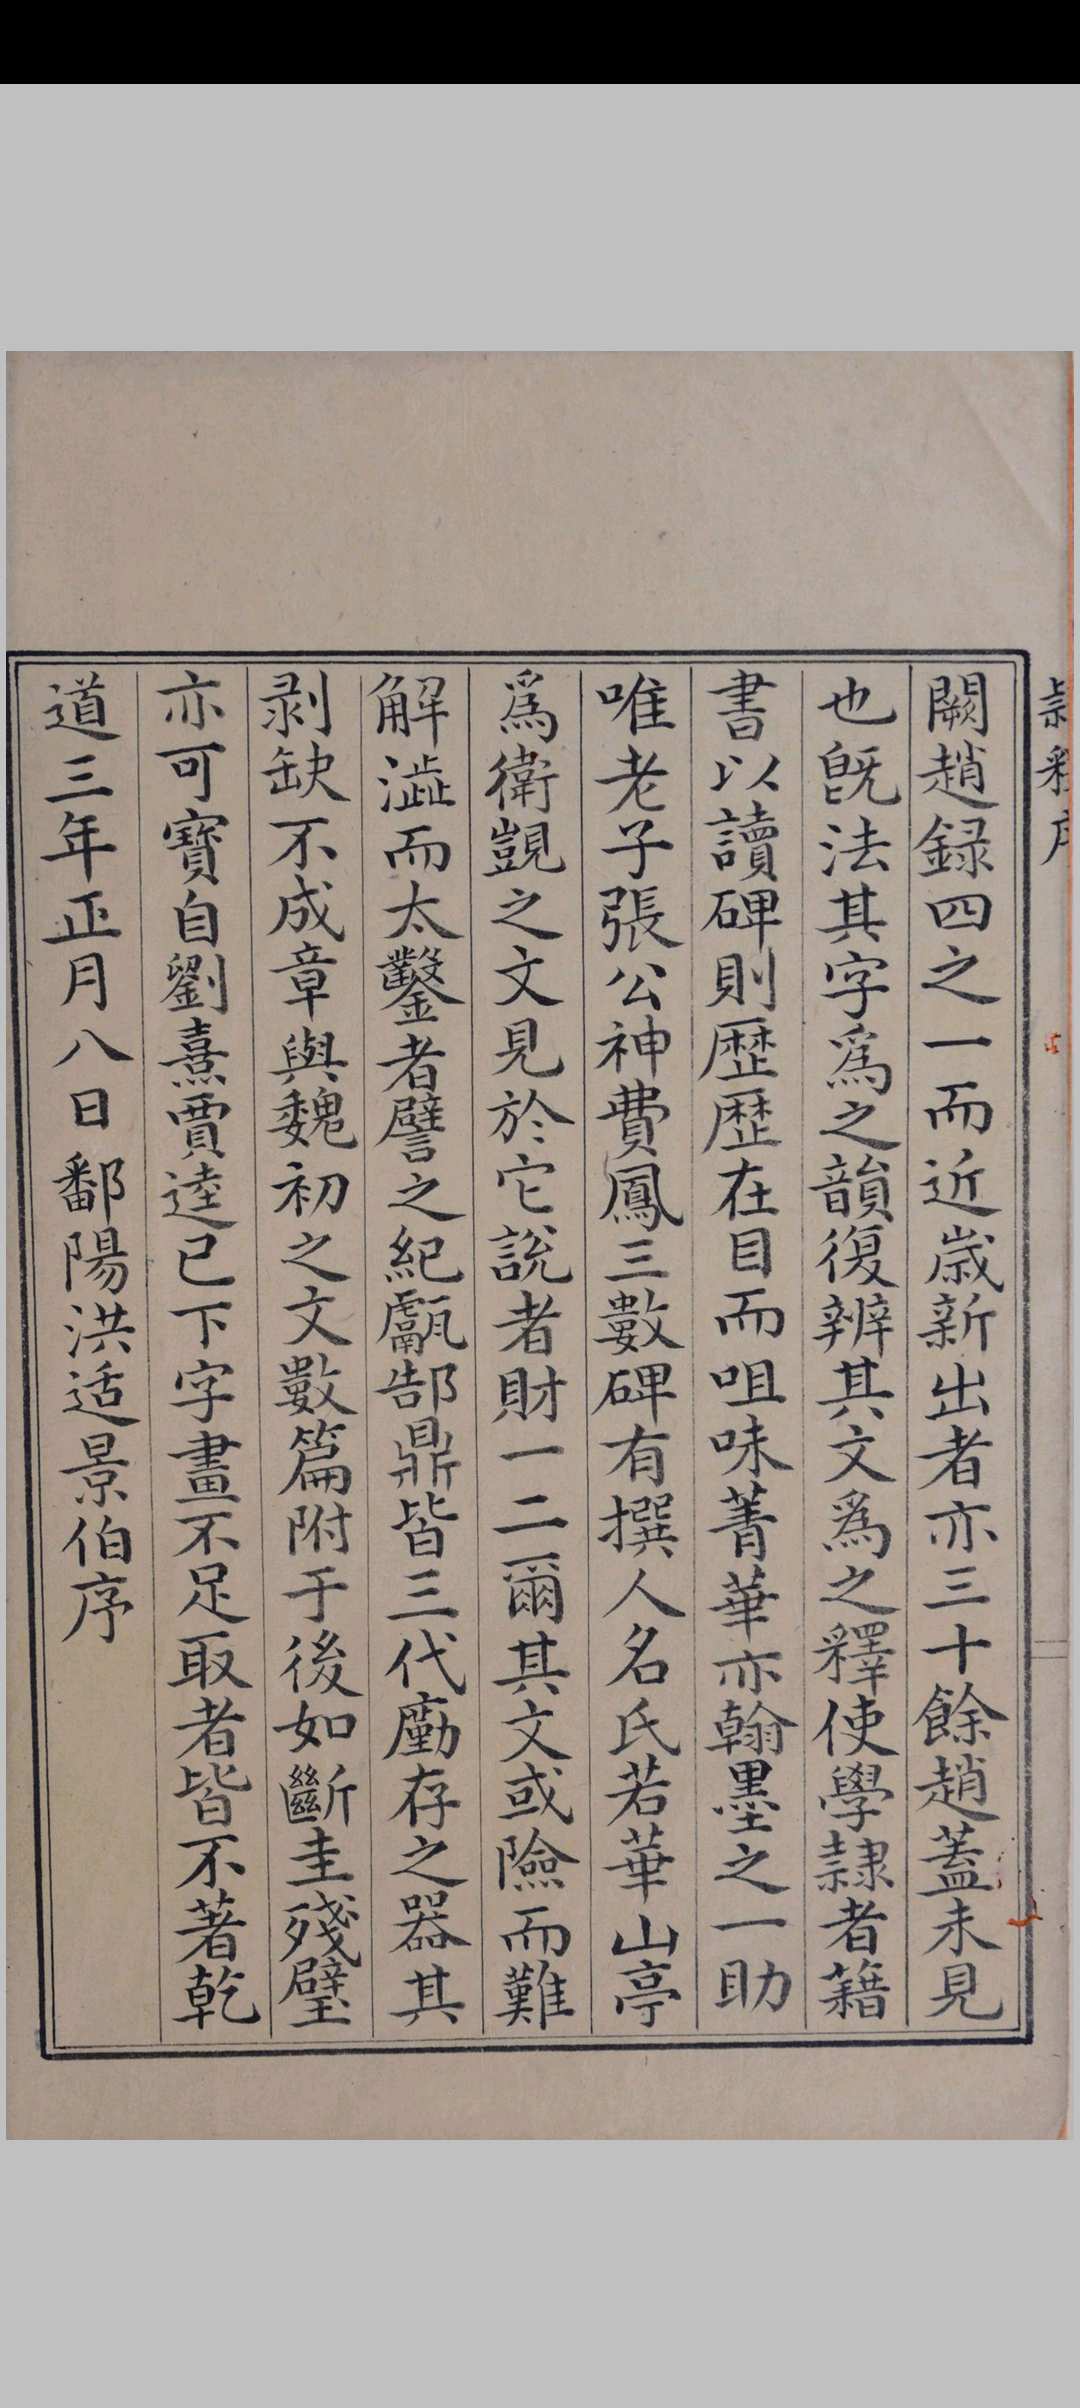 隸釋序
闕趙録四之一而近歳新出者亦三十餘趙蓋未見
也旣法其字爲之韻復辨其文爲之釋使學隷者籍
書以讀碑則歴歴在目而咀味菁華亦翰墨之一助
唯老子張公神費鳳三數碑有撰人名氏若華山亭
爲衛覬之文見於它說者財一二爾其文或險而難
解澁而太鑿者譬之紀甗郜鼎皆三代廑存之器其
剥缺不成章與魏初之文數篇附于後如斷圭殘璧
亦可寶自劉熹賈逵已下字畫不足取者皆不著乾
道三年正月八日鄱陽洪适景伯序